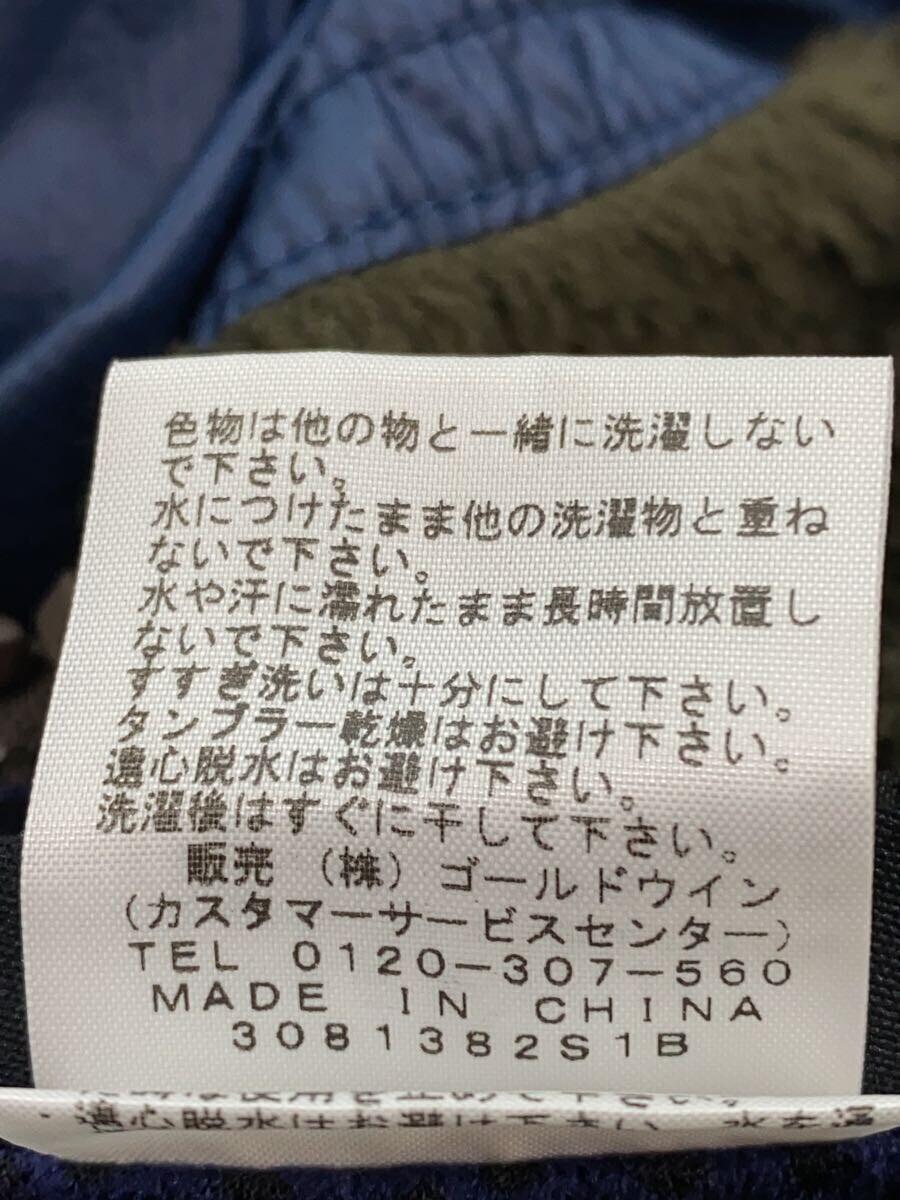 色物は他の物と一緒に洗濯しない
で下さい。
水につけたまま他の洗濯物と重ね
ないで下さい。
水や汗に濡れたまま長時間放置し
ないで下さい。
すすぎ洗いは十分にして下さい。
タンブラー乾燥はお避け下さい。
遠心脱水はお避け下さい。
洗濯後はすぐに干して下さい。
販売 (株) ゴールドウイン
(カスタマーサービスセンター)
TEL 0120-307-560
MADE IN CHINA
3081382S1B
遠心脱水はお避け下さい